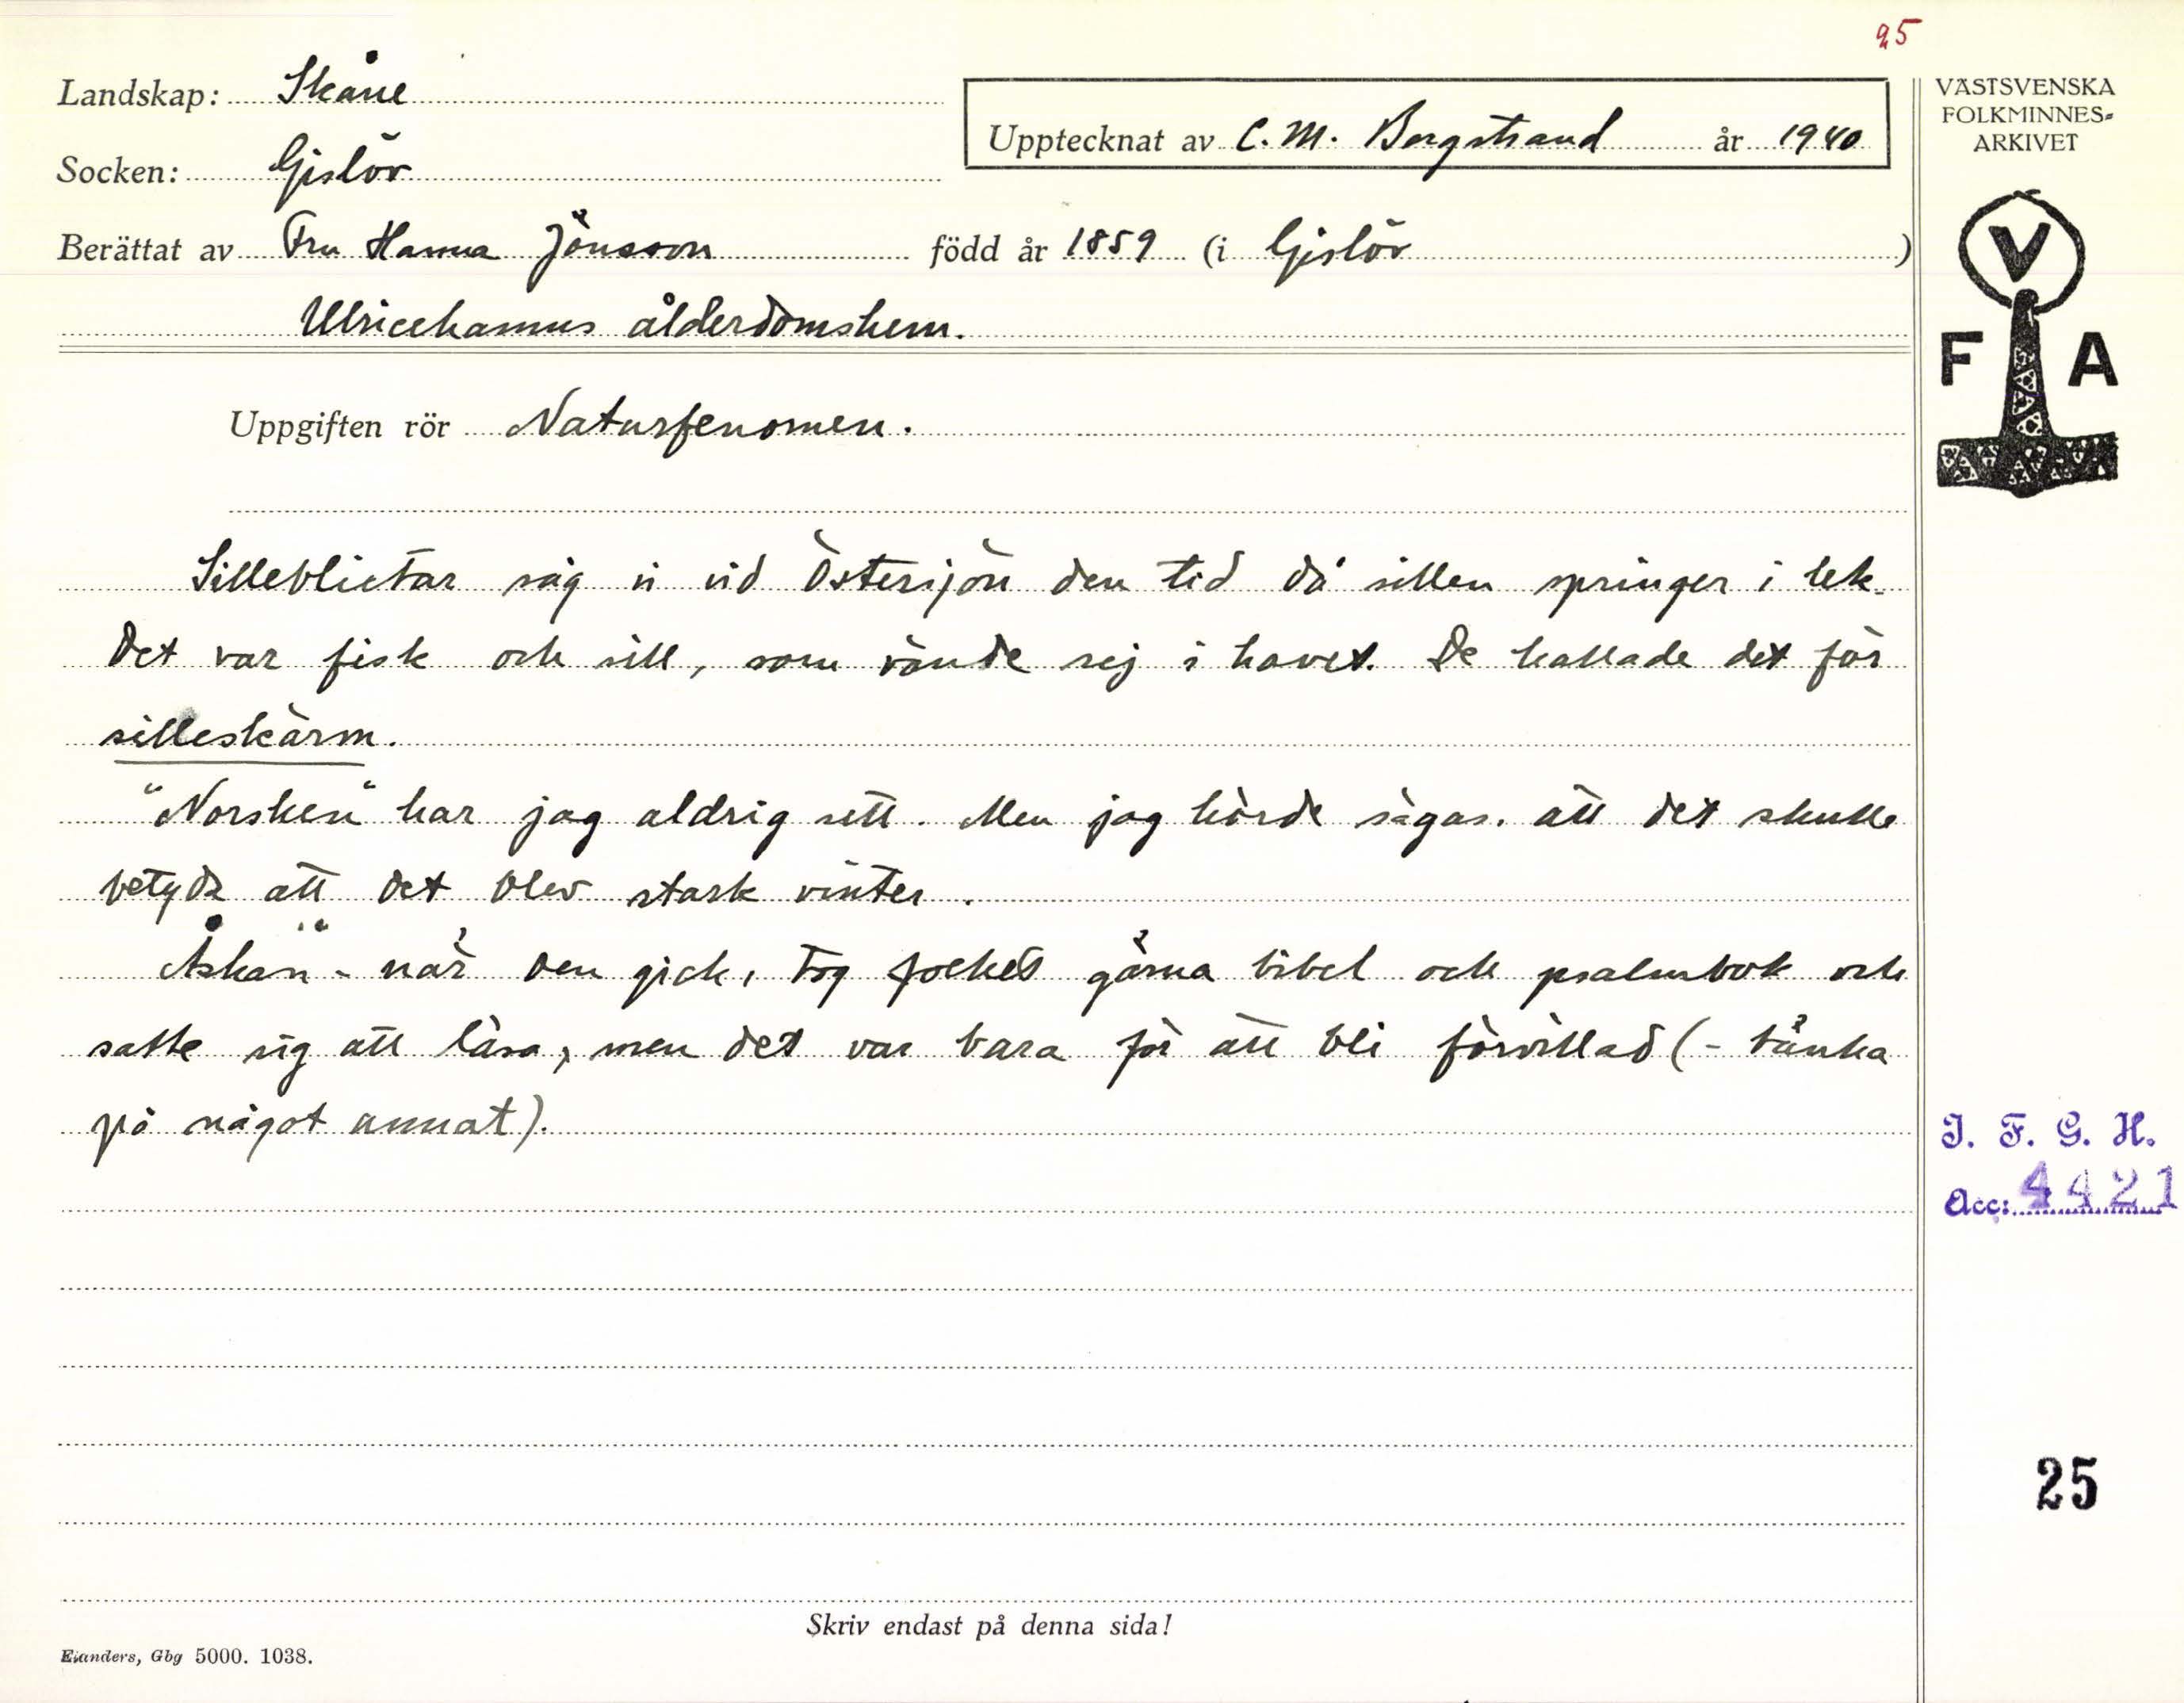 25
Landskap: Skåne
Socken: Gislöv
Upptecknat av C. M. Bergstrand år 1940
Berättat av Fru Hanna Jönsson född år 1859 (i Gislöv)
Ulricehamns ålderdomshem.
VÄSTSVENSKA
FOLKMINNES-
ARKIVET
V
F A
Uppgiften rör Naturfenomen.
Silleblictar såg vi vid Östersjön den tid då sillen springer i lek.
Det var fisk och sill, som vände sej i havet. De kallade det för
silleskärm.
"Norsken" har jag aldrig sett. Men jag hörde sägas. att det skulle
betyda att det blev stark vinter.
Åskan - när den gick, tog folket gärna bibel och psalmbok och
satte sig att läsa, men det var bara för att bli förvillad (- tänka
på något annat).
I. F. G. H.
Acc: 4421
25
Skriv endast på denna sida!
Elanders, Gbg 5000. 1038.